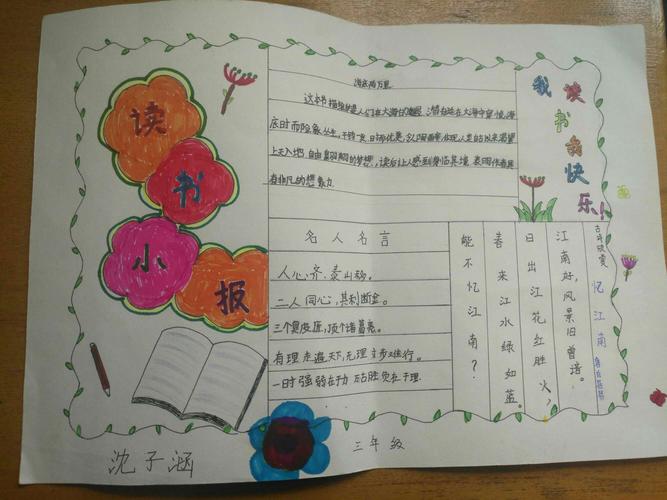 读书小报
海底两万里
这本书描绘的是人们在大海
底时而险象丛生,千钧一发,时而优美
上天入地 自由翱翔的梦想,读后让人感到身临其境 表现作者具
有非凡的想象力
我读书我快乐!
名人名言
人心齐,泰山移。
二人同心,其利断金。
三个臭皮匠,顶个诸葛亮。
有理走遍天下,无理寸步难行。
一时强弱在于力 千古胜负在于理
古诗欣赏
忆江南
江南好,风景旧曾谙。
日出江花红胜火,
春来江水绿如蓝。
能不忆江南?
沈子涵
三年级